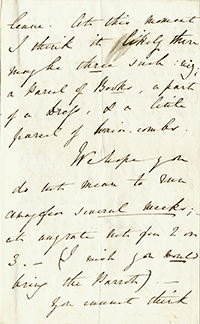 leave. At this moment
I think it likely there
may be three such: viz;
a Parcel of Books, a part
of a Dress, & a little
parcel of hair-combs.
We hope you
do not mean to run
away for several weeks;-
at any rate not for 2 or
3. - (I wish you would
bring the Parrot) -
You cannot think